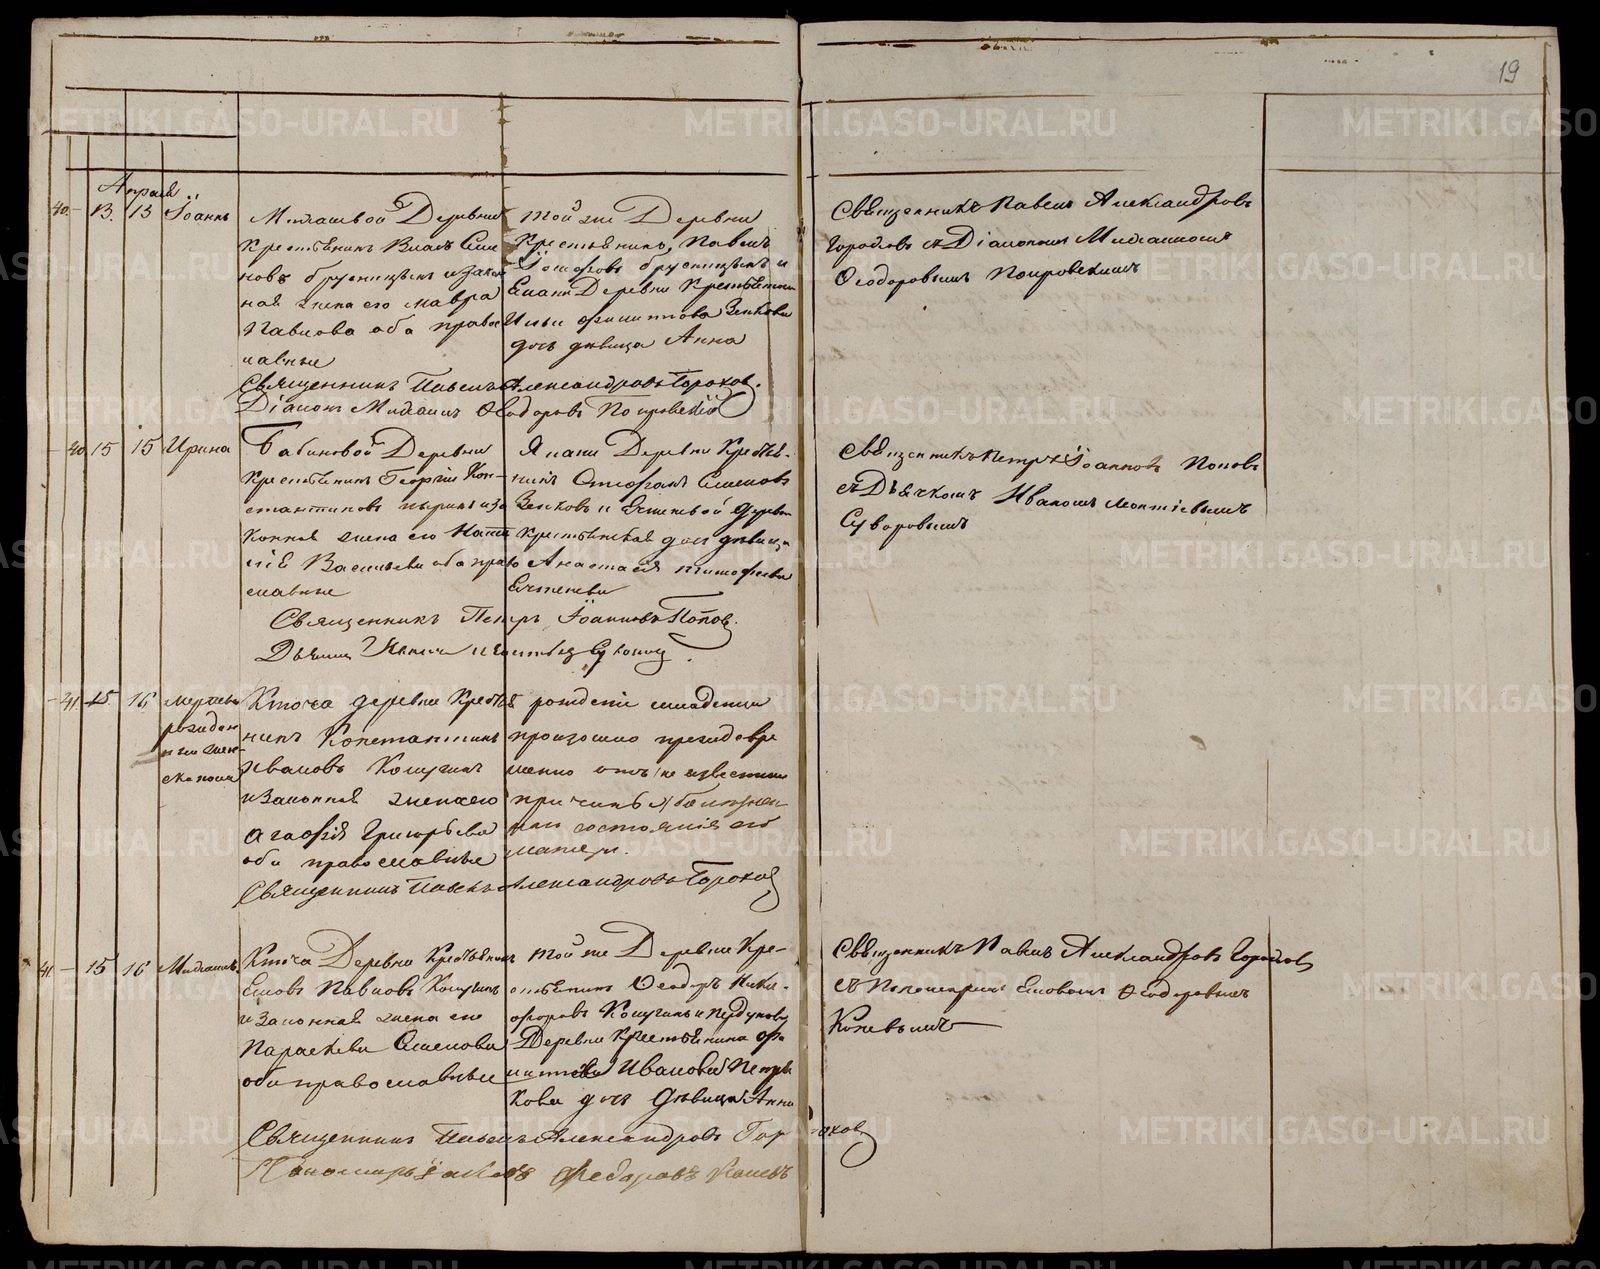 19
Апреля
40. – 13. 13 Іоаннъ
Деревни
крестьянинъ Власъ Симе
новъ брусницынъ и закон
ная жена его мавра
Павлова оба право
славные
той же Деревни
крестьянинъ, Павелъ
брусницынъ и
Елани Деревни крестьянина
Ильи филиппова Зенкова
дочь девица Анна
Священникъ Павелъ Александровъ
Гороховъ съ Діакономъ Михаиломъ
Ѳеодоровымъ Покровскимъ
Священникъ Павелъ Александровъ Гороховъ.
Діаконъ Михаилъ Ѳеодоровъ Покровскій
– 40 15 15 Ирина
Бабиновой Деревни
крестьянинъ Георгій Кон-
стантиновъ и за
конная жена его Ната
лія Васильева оба право
славные
Елани Деревни Крестья-
нинъ Стефанъ Сименовъ
Зенковъ и деревни
крестьянская дочь девица
Анастасія тимофеева
Священникъ Петръ Іоанновъ Поповъ
съ Дьячкомъ Иваномъ леонтіевымъ
Суворовымъ
Священникъ Петръ Іоанновъ Поповъ.
– 41 15 16 мертво
рожден
ный жен-
ска пола
Ключа деревни Крестья
нинъ Константинъ
Ивановъ Кокшинъ
и законная жена его
Агафія Григорьева
оба православные
рожденіе младенца
произошло преждевре
менно отъ не известной
причины и болезнен
наго состоянія его
матери.
Священникъ Павелъ Александровъ Гороховъ
41 – 15 16 Михаилъ
Ключа Деревни Крестьянинъ
Павловъ
и Законная жена его
Параскева Симеонова
оба православные
той же Деревни Кре-
стьянинъ Ѳеодоръ Ники-
форовъ
Деревни Крестьянина фи
липпа Иванова Петра
кова дочь Девица Анна
Священникъ Павелъ Александровъ Гороховъ
съ Пономаремъ Ѳеодоровымъ
Коневымъ
Священникъ Павелъ Александровъ Гороховъ
Пономарь Іаковъ Федоровъ Коневъ
METRIKI.GASO-URAL.RU